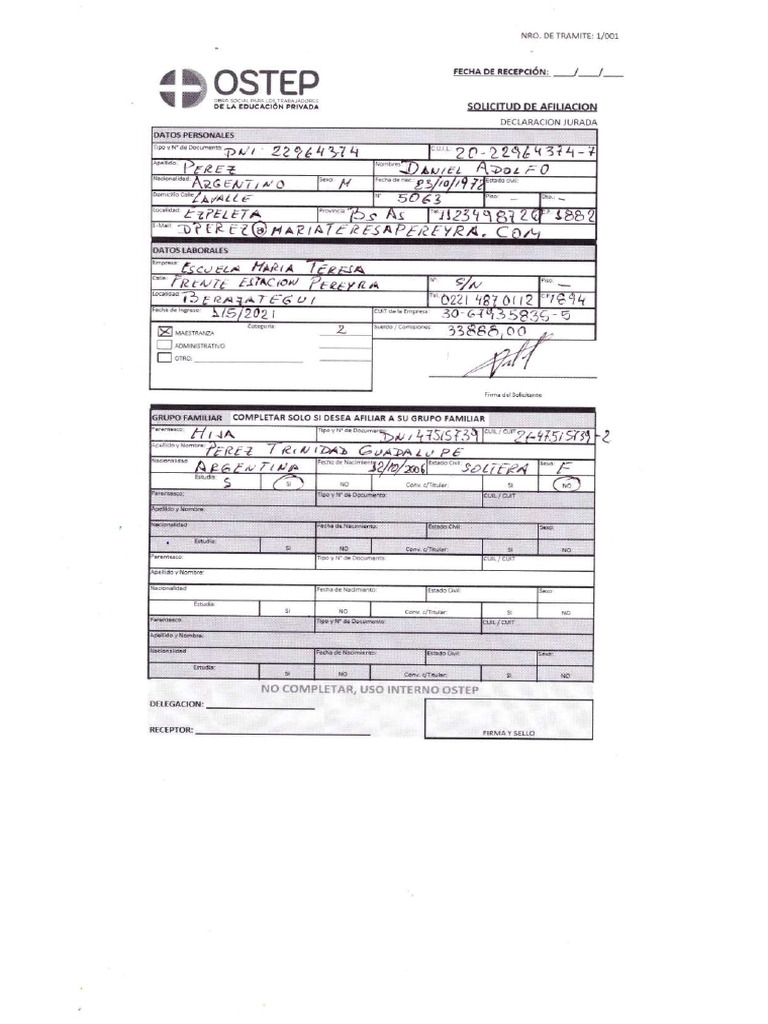 NRO. DE TRAMITE: 1/001
OSTEP
OBRA SOCIAL PARA LOS TRABAJADORES
DE LA EDUCACIÓN PRIVADA
FECHA DE RECEPCIÓN: ___/___/___
SOLICITUD DE AFILIACION
DECLARACION JURADA
DATOS PERSONALES
Tipo y N° de Documento: DNI: 22964374 C.U.I.L: 20-22964374-7
Apellido: PEREZ Nombres: DANIEL ADOLFO
Nacionalidad: ARGENTINO Sexo: M Fecha de nac. 23/10/1972 Estado Civil:
Domicilio Calle: LAVALLE N° 5063 Piso: - Dto.: -
Localidad: EZPELETA Provincia: Bs As Tel: 1123498720 C.P. 1882
E-Mail: DPEREZ@MARIATERESAPEREYRA.COM
DATOS LABORALES
Empresa: ESCUELA MARIA TERESA
Calle: FRENTE ESTACION PEREYRA N°: S/N Piso: -
Localidad: BERAZATEGUI Tel. 0221 4870112 CP 1894
Fecha de Ingreso: 1/5/2021 CUIT de la Empresa: 30-67935835-5
Categoría: Sueldo / Comisiones: 33888,00
MAESTRANZA 2
ADMINISTRATIVO
OTRO:
Firma del Solicitante
GRUPO FAMILIAR COMPLETAR SOLO SI DESEA AFILIAR A SU GRUPO FAMILIAR
Parentesco: HIJA Tipo y N° de Documento: DNI 47515739 CUIL / CUIT 27-47515739-2
Apellido y Nombre: PEREZ TRINIDAD GUADALUPE
Nacionalidad ARGENTINA Fecha de Nacimiento: 12/10/2006 Estado Civil: SOLTERA Sexo: F
Estudia: S SI NO Conv. c/Titular: SI NO
Parentesco: Tipo y N° de Documento: CUIL / CUIT
Apellido y Nombre:
Nacionalidad Fecha de Nacimiento: Estado Civil: Sexo:
Estudia: SI NO Conv. c/Titular: SI NO
Parentesco: Tipo y N° de Documento: CUIL / CUIT
Apellido y Nombre:
Nacionalidad Fecha de Nacimiento: Estado Civil: Sexo:
Estudia: SI NO Conv. c/Titular: SI NO
Parentesco: Tipo y N° de Documento: CUIL / CUIT
Apellido y Nombre:
Nacionalidad Fecha de Nacimiento: Estado Civil: Sexo:
Estudia: SI NO Conv. c/Titular: SI NO
NO COMPLETAR, USO INTERNO OSTEP
DELEGACION:
RECEPTOR:
FIRMA Y SELLO